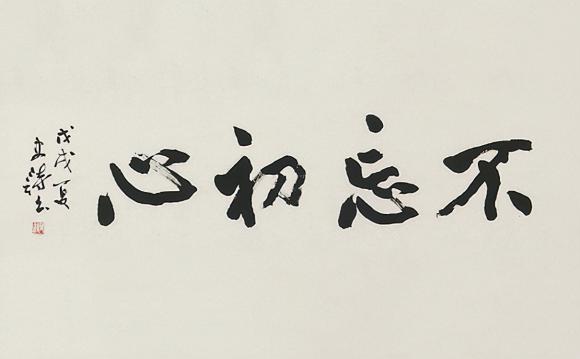 不忘初心
戊戌夏